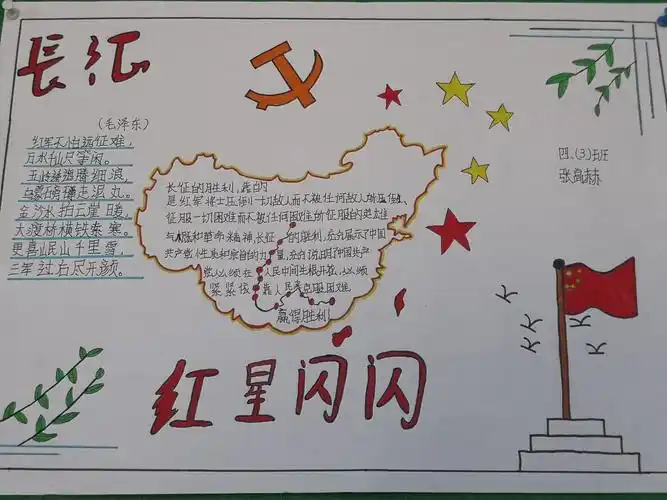 长征
(毛泽东)
红军不怕远征难,
万水千山只等闲。
五岭逶迤腾细浪,
乌蒙磅礴走泥丸。
金沙水拍云崖暖,
大渡桥横铁索寒。
更喜岷山千里雪,
三军过后尽开颜。
长征的胜利,靠的
是红军将士压倒一切敌人而不被任何敌人所压倒,
征服一切困难而不被任何困难所征服的英雄
和革命精神,长征的胜利,充分展示了中国
共产党性质和宗旨的力量,充分说明了中国共产
党必须在人民中间生根开放,必须
紧紧依靠人民克服困难
赢得胜利
四.(3)班
红星闪闪